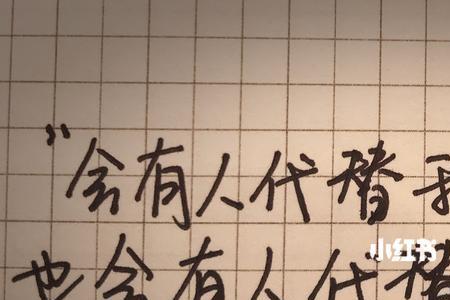 "会有人代替我
也会有人代替
小红书